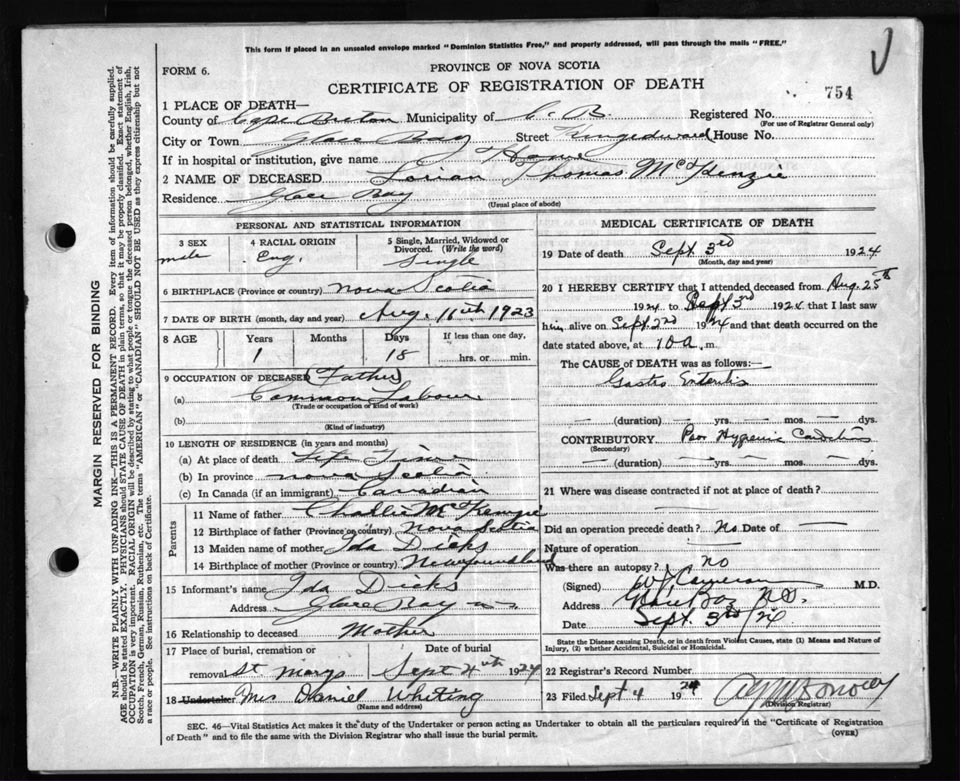 This form if placed in an unsealed envelope marked "Dominion Statistics Free," and properly addressed, will pass through the mails "FREE."
FORM 6.
PROVINCE OF NOVA SCOTIA
CERTIFICATE OF REGISTRATION OF DEATH
754
1 PLACE OF DEATH—
County of Cape Breton Municipality of C. B. Registered No.
(For use of Registrar General only)
City or Town Glace Bay Street Kingedward House No.
If in hospital or institution, give name Home
2 NAME OF DECEASED Thomas McKenzie
Residence Glace Bay
(Usual place of abode)
PERSONAL AND STATISTICAL INFORMATION
3 SEX male
4 RACIAL ORIGIN Eng.
5 Single, Married, Widowed or Divorced. (Write the word) Single
6 BIRTHPLACE (Province or country) Nova Scotia
7 DATE OF BIRTH (month, day and year) Aug. 16th 1923
8 AGE Years Months Days If less than one day,
1 18 hrs. or min.
9 OCCUPATION OF DECEASED Father
(a) Common Labour
(Trade or occupation or kind of work)
(b)
(Kind of industry)
10 LENGTH OF RESIDENCE (in years and months)
(a) At place of death Life Time
(b) In province Nova Scotia
(c) In Canada (if an immigrant) Canadian
Parents
11 Name of father Challie McKenzie
12 Birthplace of father (Province or country) Nova Scotia
13 Maiden name of mother Ida Dicks
14 Birthplace of mother (Province or country) Newfoundland
15 Informant's name Ida Dicks
Address Glace Bay
16 Relationship to deceased Mother
17 Place of burial, cremation or removal St Marys
Date of burial Sept 4th 1924
18 Undertaker Mrs Daniel Whiting
(Name and address)
MEDICAL CERTIFICATE OF DEATH
19 Date of death Sept. 3rd 1924
(Month, day and year)
20 I HEREBY CERTIFY that I attended deceased from Aug. 25th
1924 to Sept 3rd 1924 that I last saw
him alive on Sept. 2nd 1924 and that death occurred on
date stated above, at 10 a. m.
The CAUSE of DEATH was as follows:—
Gastro Enteritis
(duration) yrs. mos. dys.
CONTRIBUTORY Poor Hygienic Conditions
(Secondary)
(duration) yrs. mos. dys.
21 Where was disease contracted if not at place of death?
Did an operation precede death? No Date of
Nature of operation
Was there an autopsy? no
(Signed) Cameron M.D.
Address Glace Bay N.S.
Date Sept. 3rd /24
State the Disease causing Death, or in death from Violent Causes, state (1) Means and Nature of Injury, (2) whether Accidental, Suicidal or Homicidal.
22 Registrar's Record Number
23 Filed Sept 4 1924
(Division Registrar)
SEC. 46—Vital Statistics Act makes it the duty of the Undertaker or person acting as Undertaker to obtain all the particulars required in the "Certificate of Registration
of Death" and to file the same with the Division Registrar who shall issue the burial permit.
(OVER)
MARGIN RESERVED FOR BINDING
N.B.—WRITE PLAINLY WITH UNFADING INK—THIS IS A PERMANENT RECORD. Every item of information should be carefully supplied.
AGE should be stated EXACTLY. PHYSICIANS should STATE CAUSE OF DEATH in plain terms, so that it may be properly classified. Exact statement of
OCCUPATION is very important. RACIAL ORIGIN will be described by stating to what people or tongue the deceased person belonged, whether English, Irish,
Scotch, French, German, Russian, Ruthenian, etc. The terms "AMERICAN" or "CANADIAN" SHOULD NOT BE USED as they express citizenship but not
a race or people. See instructions on back of Certificate.